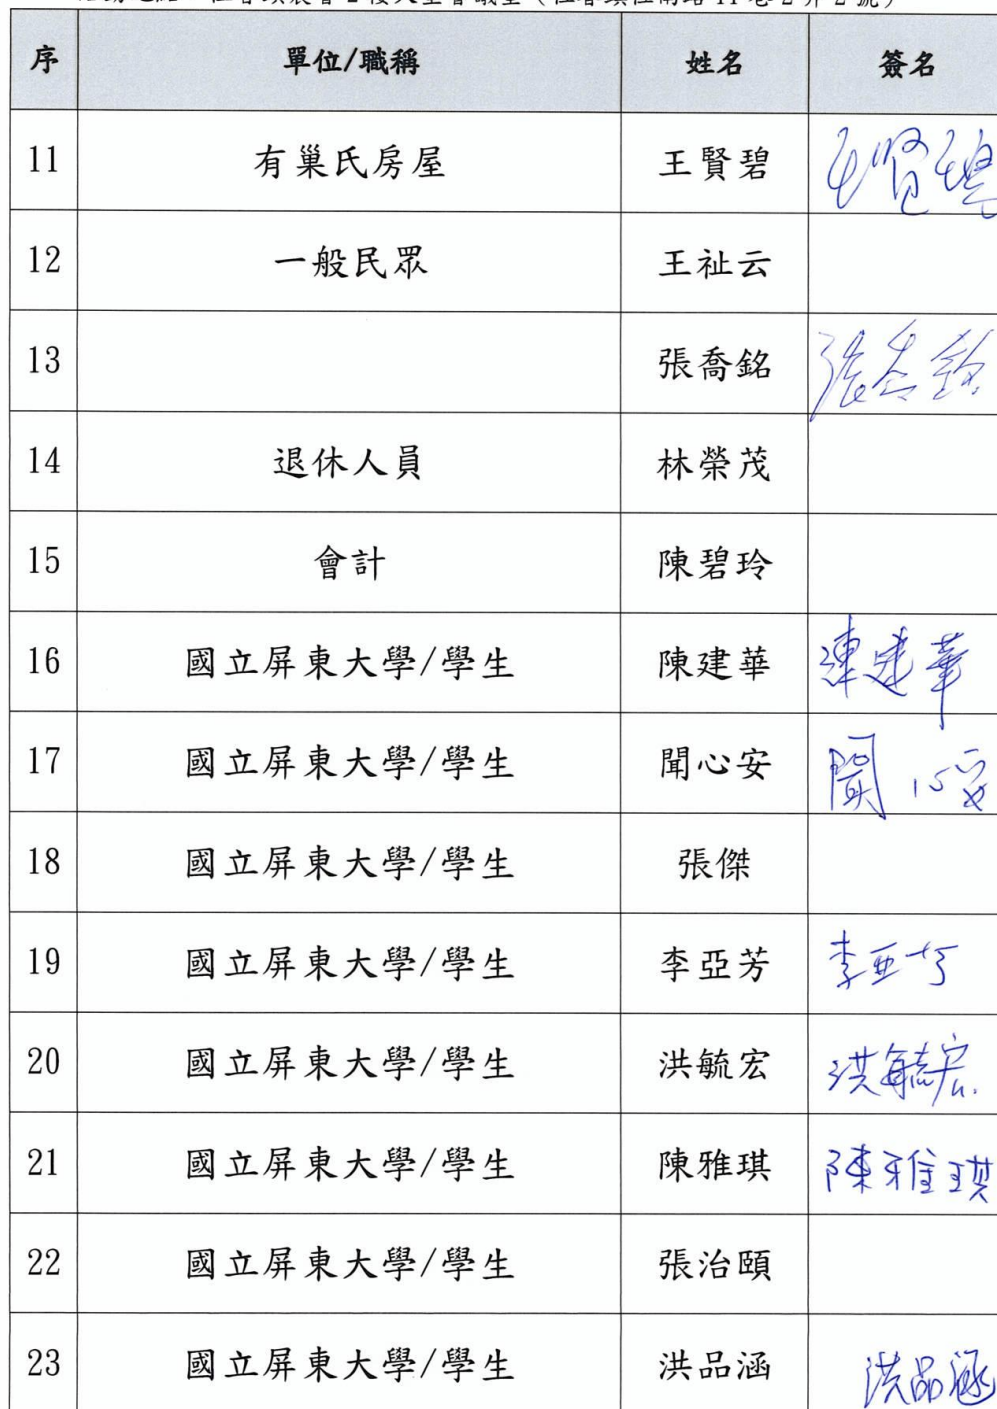 序 單位/職稱 姓名 簽名
11 有巢氏房屋 王賢碧 王賢碧
12 一般民眾 王祉云
13 張喬銘 張喬銘
14 退休人員 林榮茂
15 會計 陳碧玲
16 國立屏東大學/學生 陳建華 連建華
17 國立屏東大學/學生 聞心安 聞心安
18 國立屏東大學/學生 張傑
19 國立屏東大學/學生 李亞芳 李亚芳
20 國立屏東大學/學生 洪毓宏 洪毓宏
21 國立屏東大學/學生 陳雅琪 陳雅琪
22 國立屏東大學/學生 張治頤
23 國立屏東大學/學生 洪品涵 洪品涵